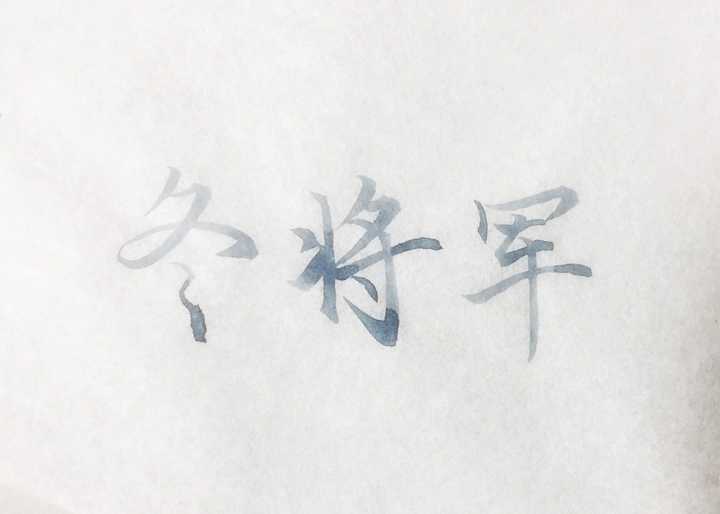 冬将军